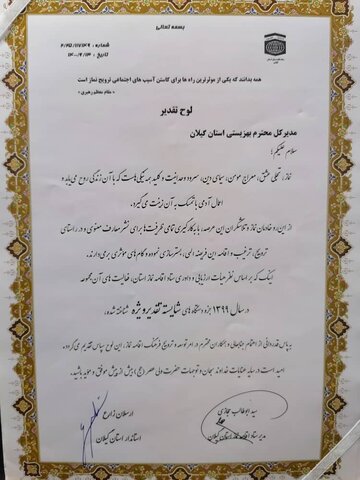 بسمه تعالی
شماره: ۲/۲۵/۱۷/۱۴۹
تاریخ: ۱۴۰۰/۲/۱۳
همه بدانند که یکی از موثرترین راه ها برای کاستن آسیب های اجتماعی ترویج نماز است
«مقام معظم رهبری»
لوح تقدیر
مدیرکل محترم بهزیستی استان گیلان
سلام علیکم؛
نماز؛ تجلی عشق، معراج مومن، سیمای دین، سرود وحدانیت و کلید همه نیکی‌هاست که با آن زندگی روح می‌یابد و
اعمال آدمی با تمسک به آن زینت می‌گیرد.
از این رو خادمان نماز و تلاشگران این عرصه، با به کارگیری تمامی ظرفیت‌ها برای نشر معارف معنوی و در راستای
ترویج، ترغیب و اقامه این فریضه الهی، بسترسازی نموده و گام‌های موثری بردارند.
اینک که بر اساس نظر هیأت ارزیابی و داوری ستاد اقامه نماز استان، فعالیت های آن مجموعه
در سال ۱۳۹۹ جزء دستگاه‌های شایسته تقدیر ویژه شناخته شده،
به پاس قدردانی از اهتمام جنابعالی و همکاران محترم در امر توسعه و ترویج فرهنگ اقامه نماز، این لوح سپاس تقدیم می‌گردد.
امید است در سایه عنایات خداوند سبحان و توجهات حضرت ولی عصر (عج) بیش از پیش موفق و موید باشید.
سید ابوطالب حجازی
مدیر ستاد اقامه نماز استان گیلان
ارسلان زارع
استاندار استان گیلان